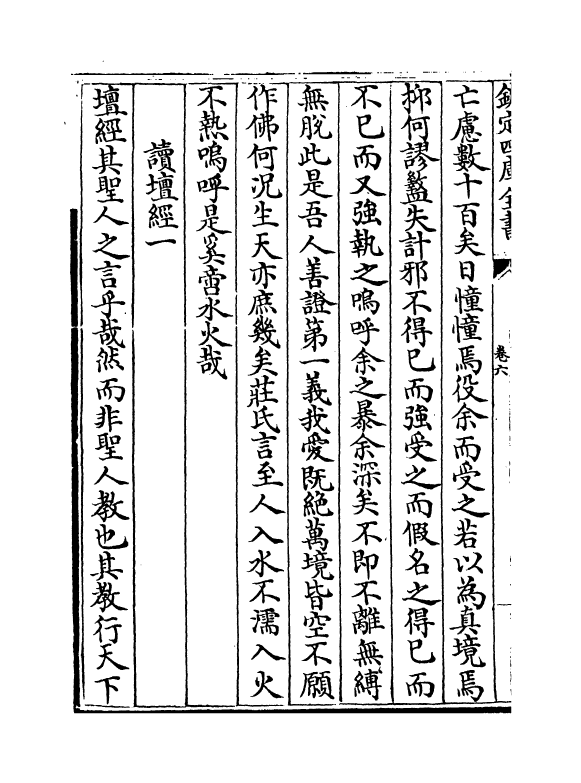 欽定四庫全書
卷六
亡慮數十百矣日憧憧焉役余而受之若以為真境焉
抑何謬盭失計邪不得已而強受之而假名之得已而
不已而又強執之嗚呼余之暴余深矣不即不離無縛
無脫此是吾人善證第一義我愛既絶萬境皆空不願
作佛何況生天亦庶幾矣莊氏言至人入水不濡入火
不熱嗚呼是奚啻水火哉
讀壇經一
壇經其聖人之言乎哉然而非聖人教也其教行天下